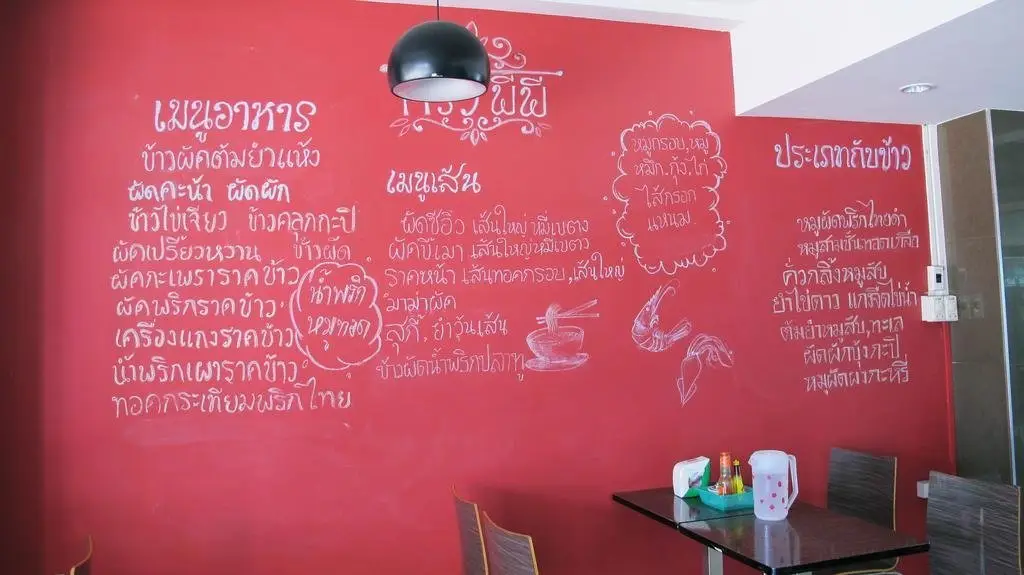 พีพี
เมนูอาหาร
ข้าวผัดต้มยำแห้ง
ผัดคะน้า ผัดผัก
ข้าวไข่เจียว ข้าวคลุกกะปิ
ผัดเปรี้ยวหวาน ข้าวผัด
ผัดกะเพราราดข้าว
ผัดพริกราดข้าว
เครื่องแกงราดข้าว
น้ำพริกเผาราดข้าว
ทอดกระเทียมพริกไทย
น้ำพริก
หมูทอด
เมนูเส้น
ผัดซีอิ๊ว เส้นใหญ่ หมี่เบตง
ผัดขี้เมา เส้นใหญ่ หมี่เบตง
ราดหน้า เส้นทอดกรอบ,เส้นใหญ่
มาม่าผัด
สุกี้, ยำวุ้นเส้น
ข้าวผัดน้ำพริกปลาทู
หมูกรอบ,หมู
หมึก,กุ้ง,ไก่
ไส้กรอก
แหนม
ประเภทกับข้าว
หมูผัดพริกไทยดำ
หมูสามชั้นทอดเกลือ
คั่วกลิ้งหมูสับ
ยำไข่ดาว แกงจืดไข่น้ำ
ต้มยำหมูสับ,ทะเล
ผัดผักบุ้งกะปิ
หมูผัดผงกะหรี่